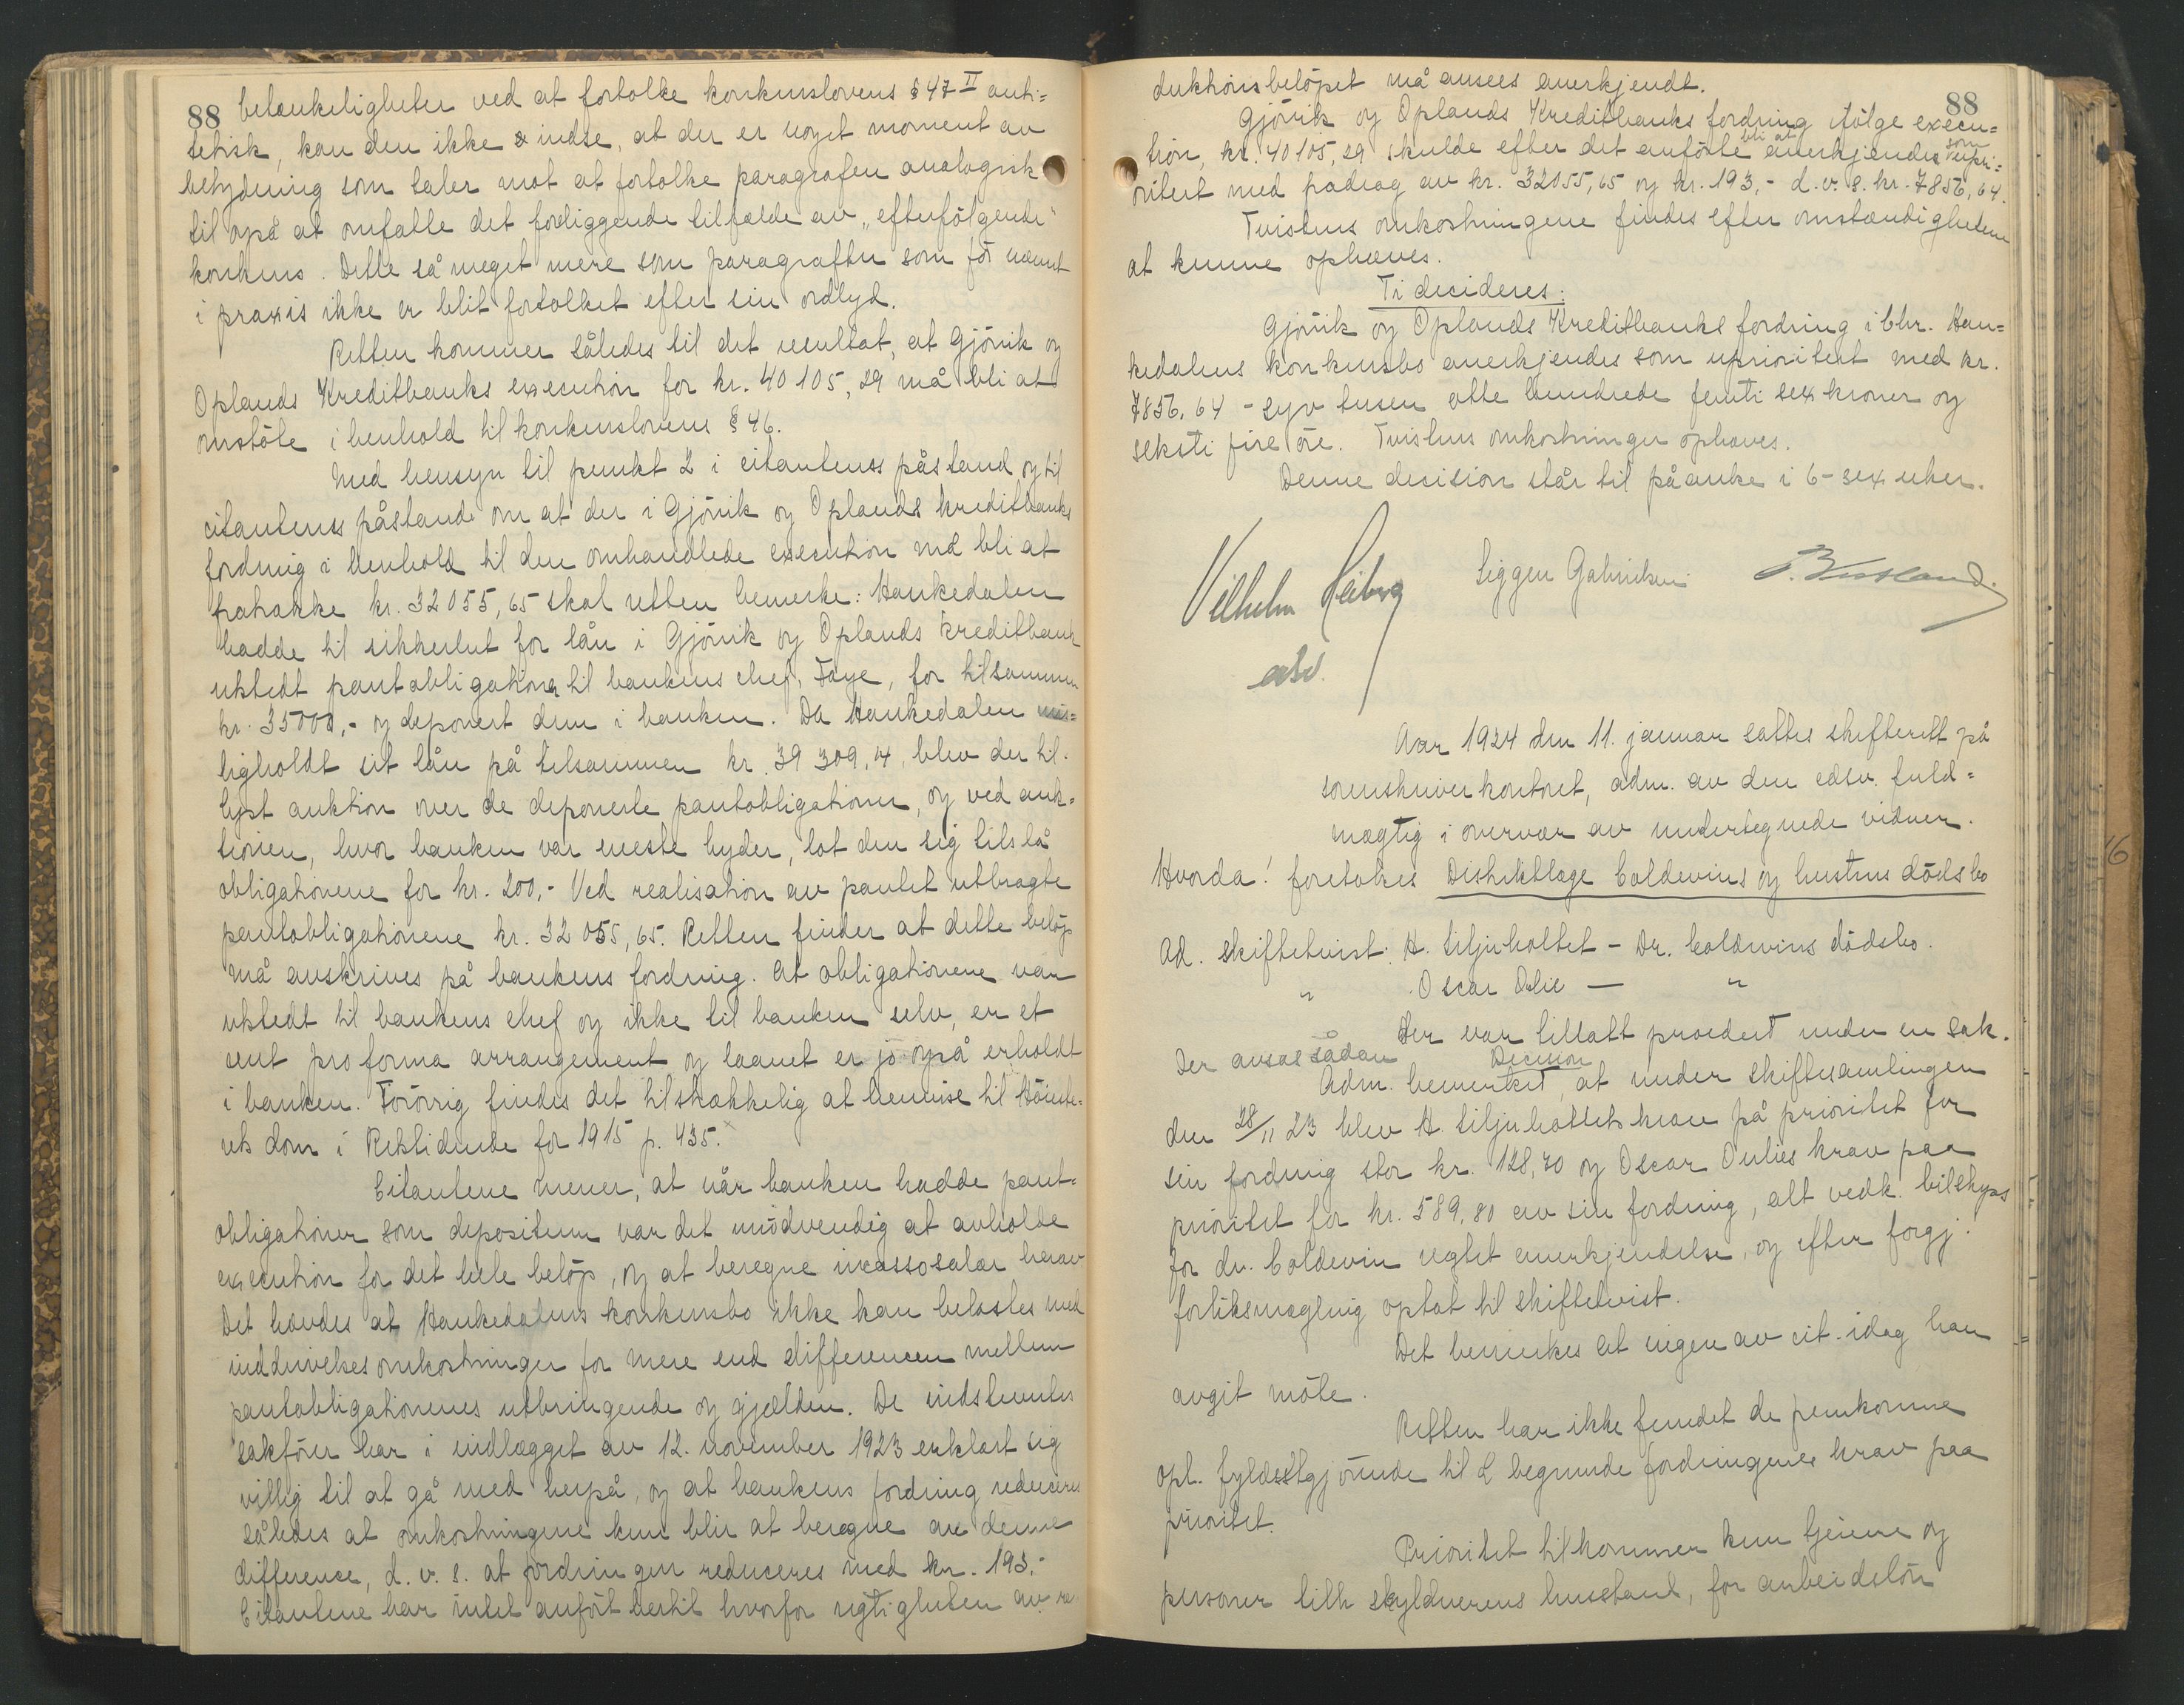 88
betænkeligheter ved at fortolke konkurslovens § 47 II anti=
tetisk, kan den ikke indse, at der er noget moment av
betydning som taler mot at fortolke paragrafen analogisk
til også at omfatte det foreliggende tilfælde av „efterfölgende"
konkurs. Dette så meget mere som paragraffen som för nævnt
i praxis ikke er blit fortolket efter sin ordlyd.
Retten kommer således til det resultat, at Gjövik og
Oplands Kreditbanks execution for kr. 40105,29 må bli at
omstöte i henhold til konkurslovens § 46.
Med hensyn til punkt 2 i citantens påstand og til
citantens påstande om at der i Gjövik og Oplands kreditbanks
fordring i henhold til den omhandlede execution må bli at
fratrække kr. 32055,65 skal retten bemerke: Hankedalen
hadde til sikkerhet for lån i Gjövik og Oplands kreditbank
utstedt pantobligationer til bankens chef, Faye, for tilsammen
kr. 35000,- og deponert dem i banken. Da Hankedalen mis=
ligholdt sit lån på tilsammen kr. 39309,14, blev der til-
lyst auktion over de deponerte pantobligationer, og ved auk=
tionen, hvor banken var meste byder, lot den sig tilslå
obligationene for kr. 200,- Ved realisation av pantet utbragte
pantobligationene kr. 32055,65. Retten finder at dette belöp
må avskrives på bankens fordring. At obligationene var
utstedt til bankens chef og ikke til banken selv, er et
rent pro forma arrangement og laanet er jo også erholdt
i banken. Forövrig findes det tilstrækkelig at henvise til Höieste=
rets dom i Retstidende for 1915 p. 435.
Citantene mener, at når banken hadde pant=
obligationer som depositum var det unödvendig at avholde
execution for det hele belöp, og at beregne incassosalær herav
Det hævdes at Hankedalens konkursbo ikke kan belastes med
inddrivelsesomkostninger for mere end differencen mellem
pantobligationenes utbringende og gjælden. De indstevntes
sakförer har i indlægget av 12. november 1923 erklært sig
villig til at gå med herpå, og at bankens fordring reduceres
således at omkostningene kun blir at beregne av denne
difference, d.v.s. at fordringen reduceres med kr. 193,-
Citantene har intet anfört hertil hvorfor rigtigheten av re
88
duktionsbelöpet må ansees anerkjendt.
Gjövik og Oplands Kreditbanks fordring ifölge execu=
tion, kr. 40105,29 skulde efter det anförte bli at anerkjendes som upri=
oritert med fradrag av kr. 32055,65 og kr. 193,- d.v.s. kr. 7856,64.
Tvistens omkostningene findes efter omstændighetene
at kunne ophæves.
Ti decideres:
Gjövik og Oplands Kreditbanks fordring i Chr. Han=
kedalens konkursbo anerkjendes som uprioritert med kr.
7856,64 - syv tusen otte hundrede femti sex kroner og
seksti fire öre. Tvistens omkostninger ophæves.
Denne decision står til påanke i 6 - sex uker.
Vilhelm Heiberg
edsv.
Aar 1924 den 11. januar sattes skifterett på
sorenskriverkontoret, adm. av den edsv. fuld=
mægtig i overvær av undertegnede vidner.
Hvorda! foretokes Distriktlæge Coldevins og hustrus dödsbo
Ad. skiftetvist: H. Siljuholtet - Dr. Coldevins dödsbo.
" Oscar Oulie — "
Der var tillatt procedert under en sak.
Der avsaes sådan
Decision
Adm. bemerket, at under skiftesamlingen
den 28/11 23 blev H. Siljuholtets krav på prioritet for
sin fordring stor kr. 128,70 og Oscar Oulies krav paa
prioritet for kr. 589,80 av sin fordring, alt vedk. bilskyss
for dr. Coldevin negtet anerkjendelse, og efter forgj.
forliksmægling optat til skiftetvist.
Det bemerkes at ingen av cit. idag har
avgit möte.
Retten har ikke fundet de fremkomne
opl. fyldestgjörende til å begrunde fordringenes krav paa
prioritet.
Prioritet tilkommer kun tjenere og
personer tilh skyldnerens husstand, for arbeidslön
16